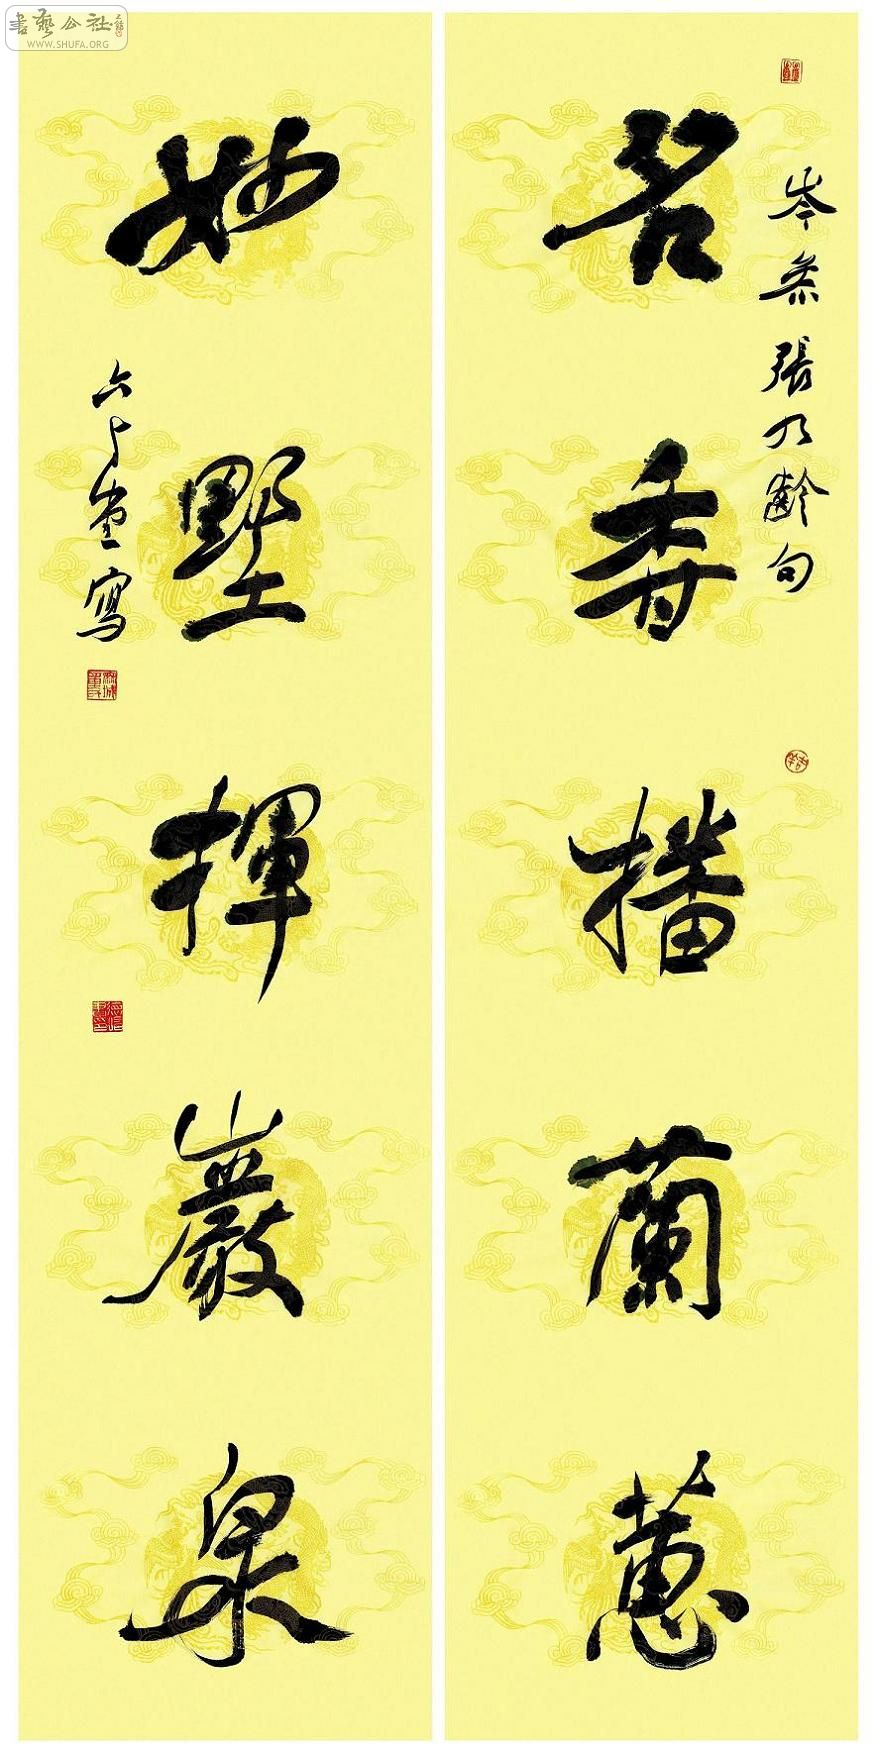 書藝公社
WWW.SHUFA.ORG
岑參張九齡句
名香播蘭蕙
妙墅揮巖泉
六寫